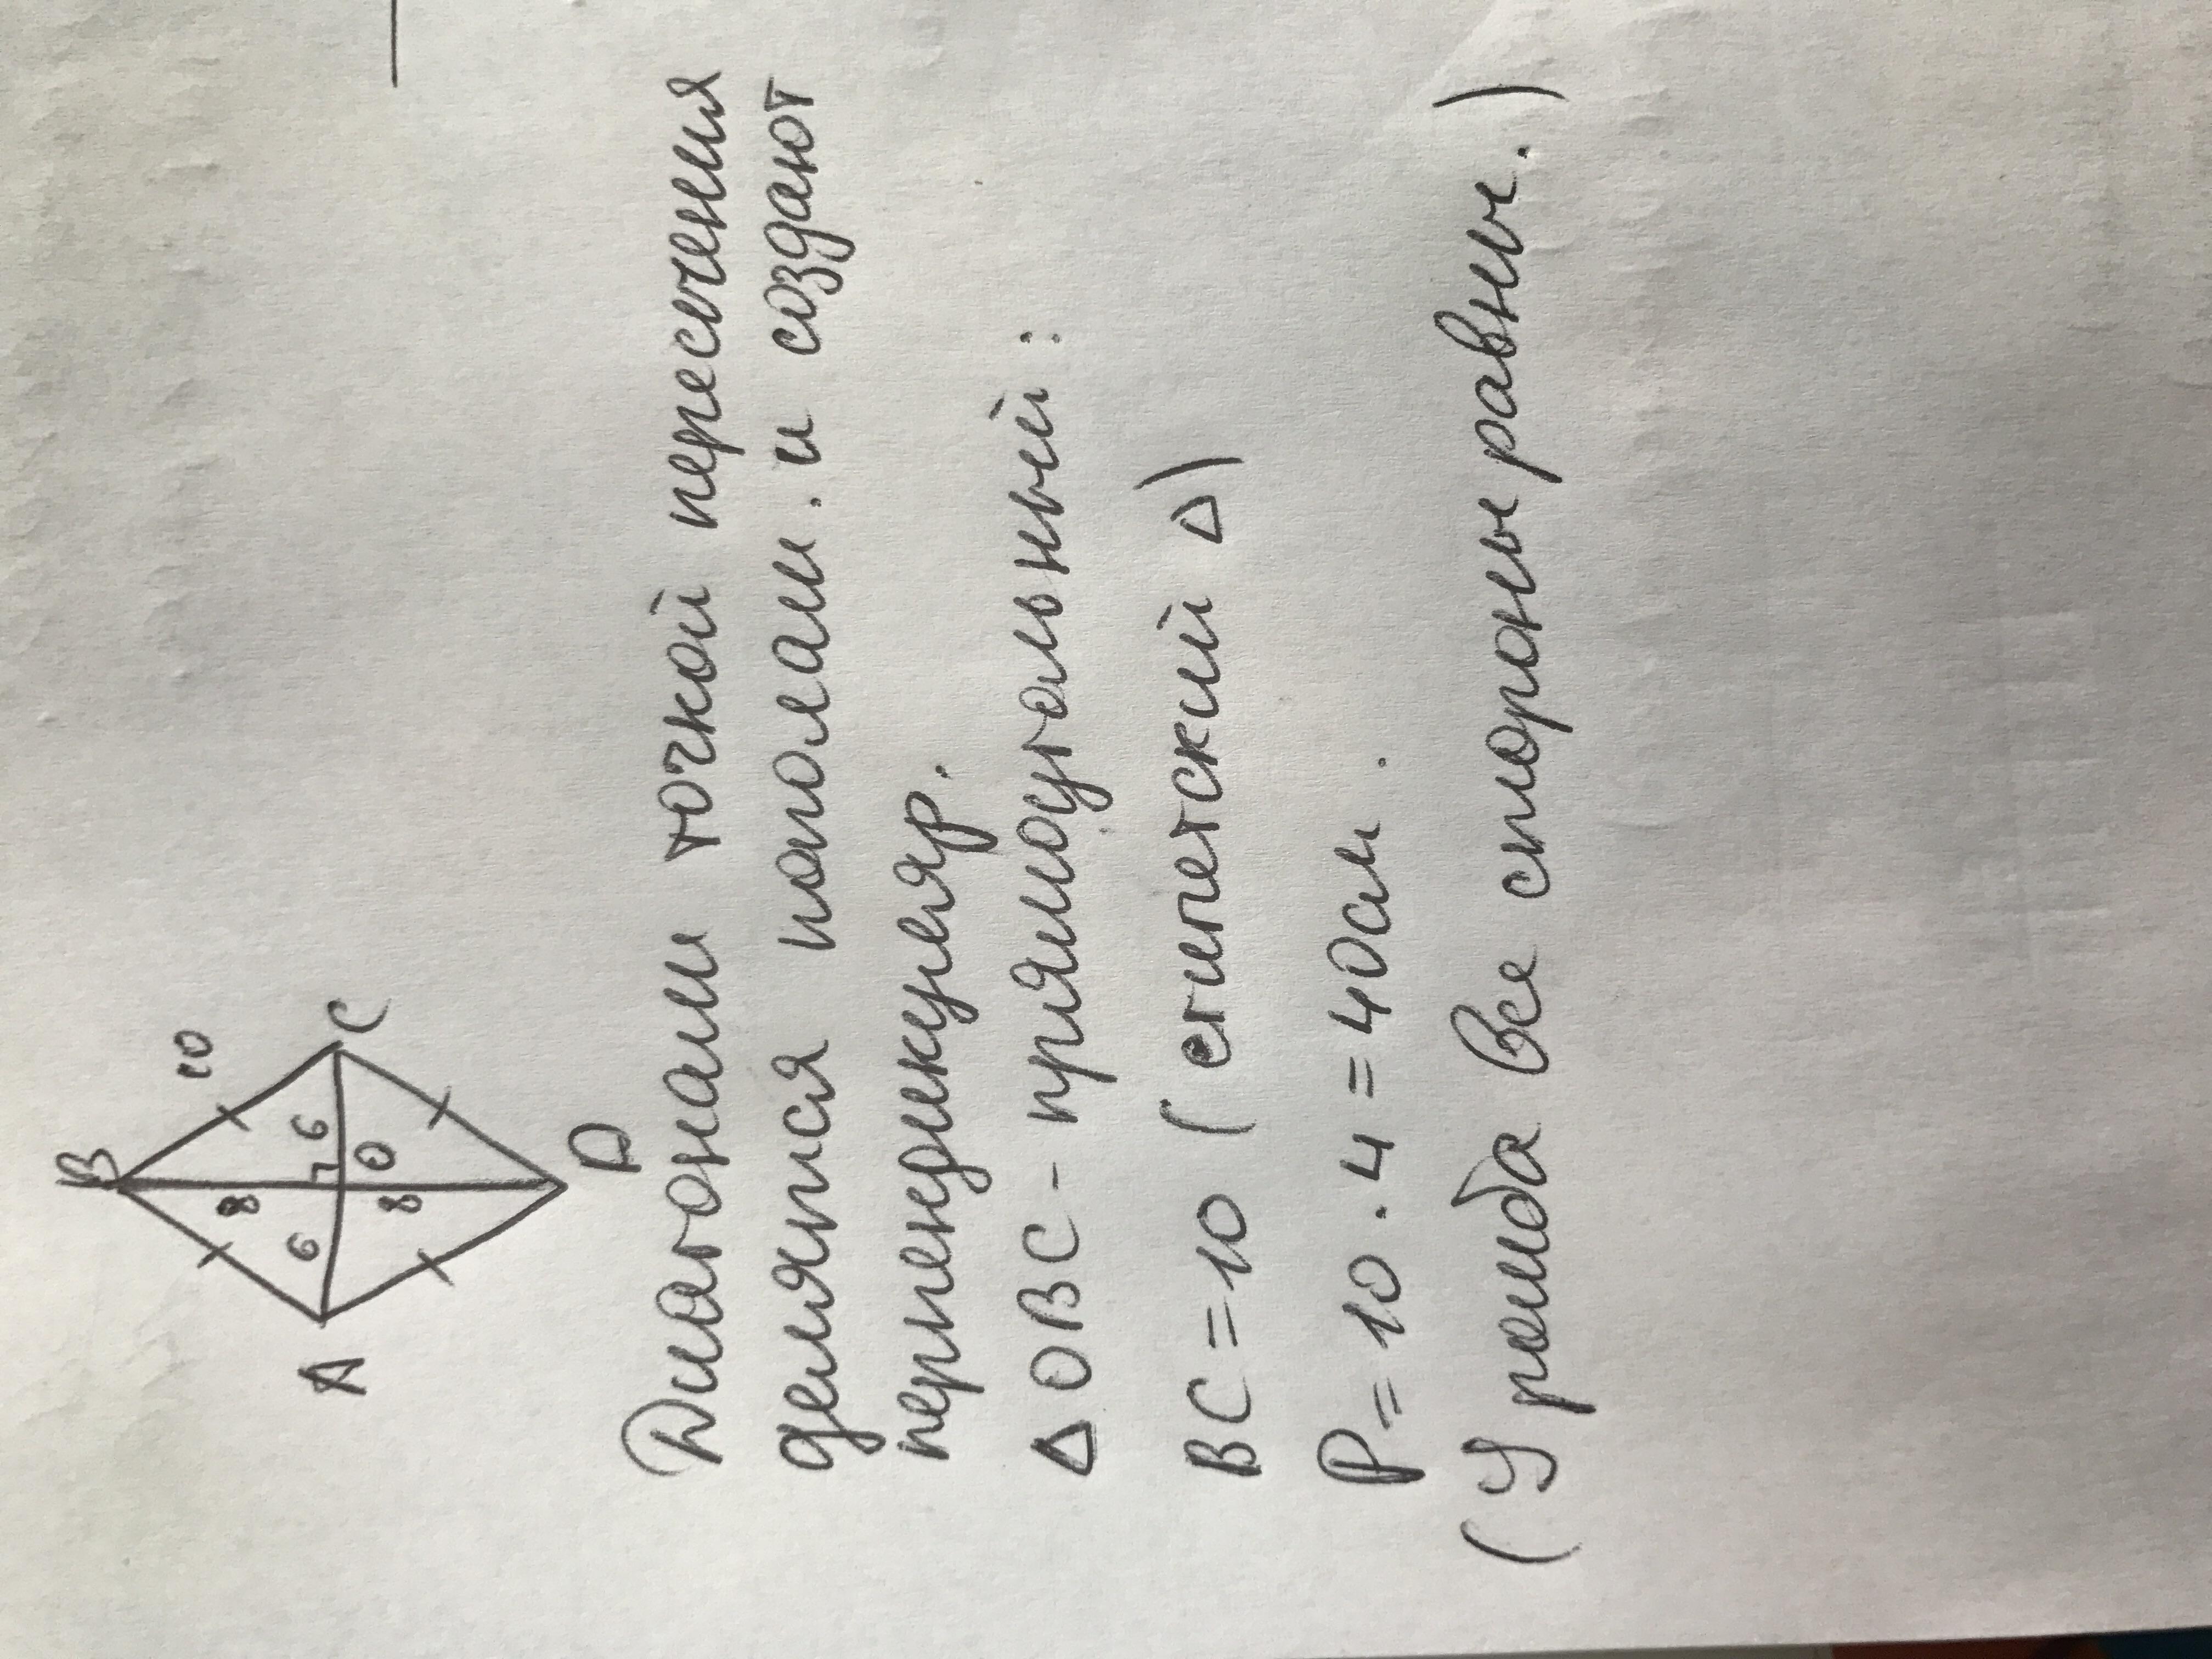 B
10
8 6
6
A C
O
8
D
Диагонали точкой пересечения
делятся пополам. и создают
перпендикуляр.
Δ OBC - прямоугольный:
BC = 10 (египетский Δ)
P = 10 · 4 = 40см.
(У ромба все стороны равны.)